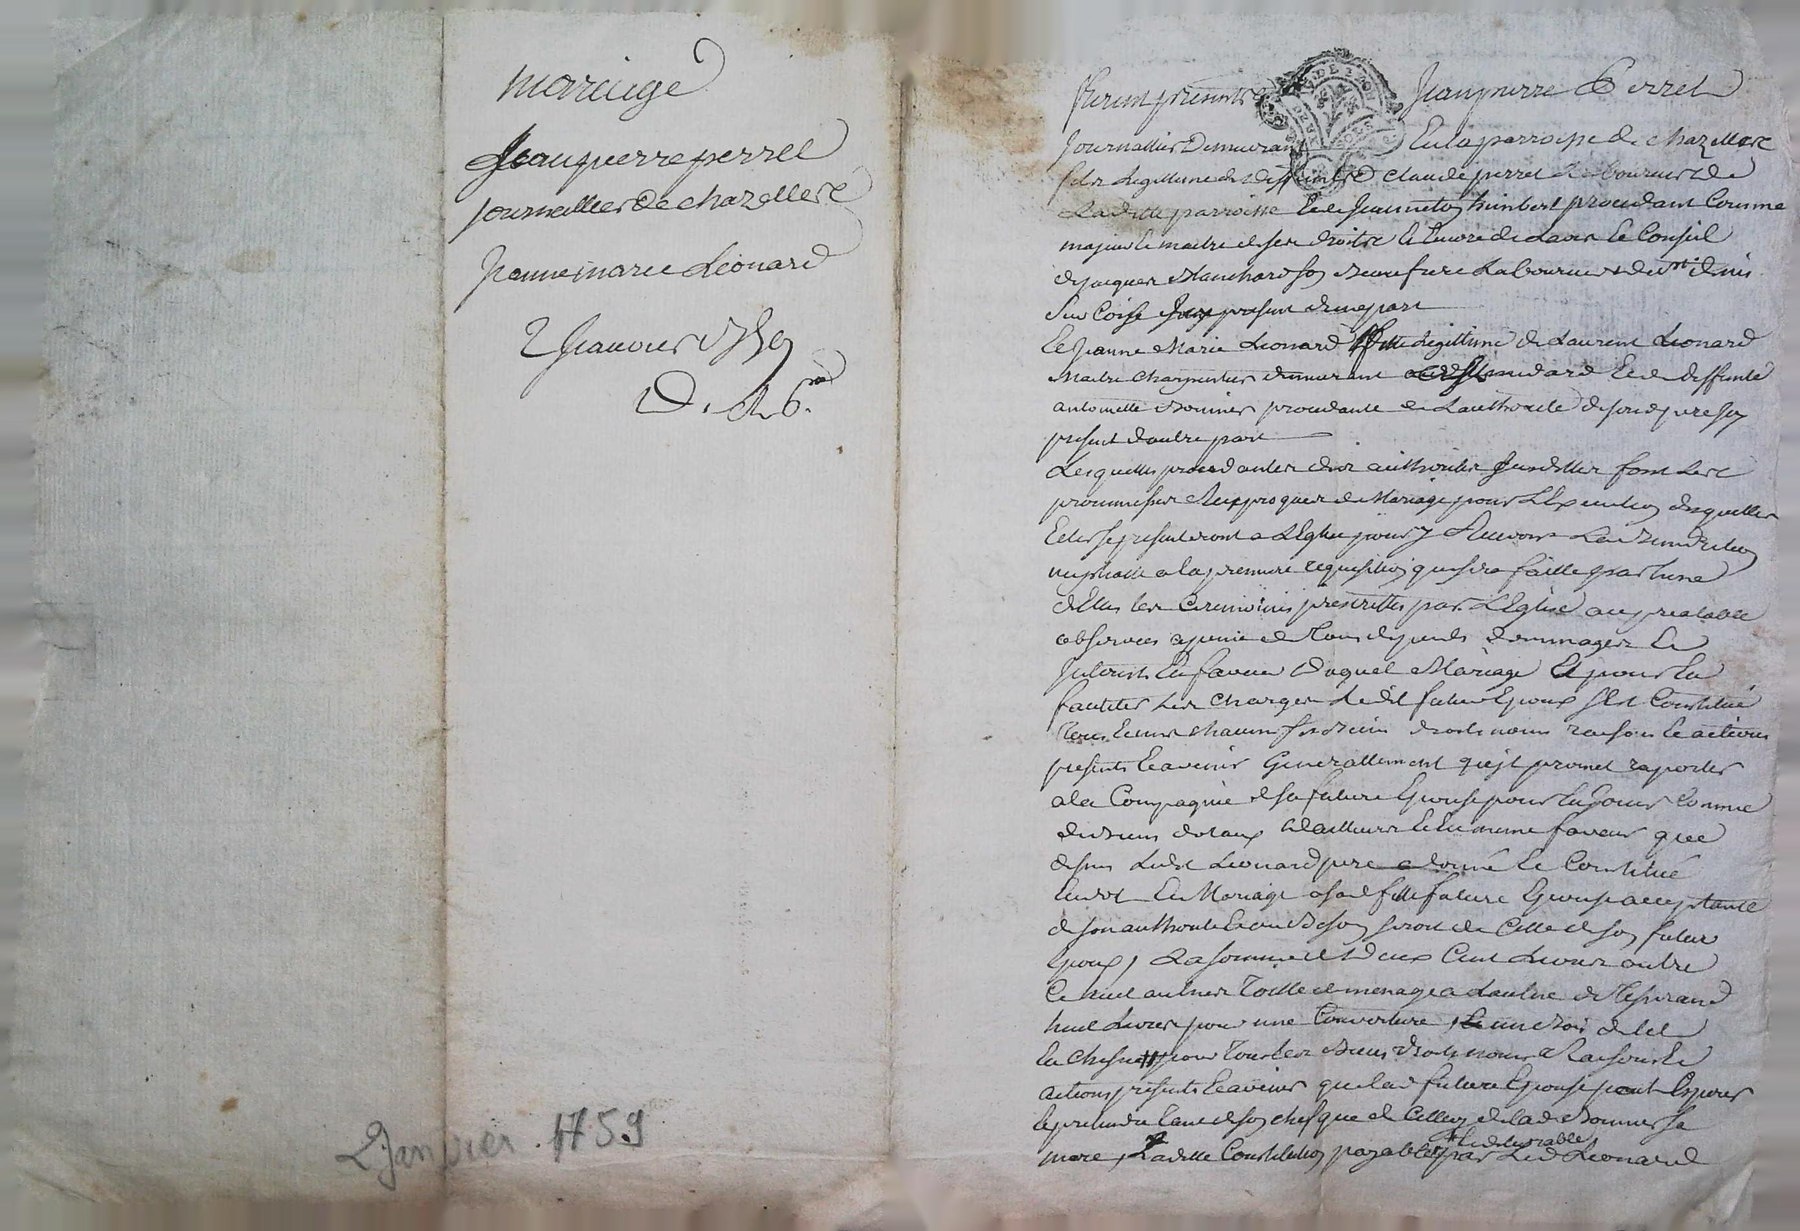 mariage
Jeanpierre perret
journallier de chazelles
Jeannemarie Léonard
2 Janvier 1759
2 Janvier 1759
Furent présents Jeanpierre Perret
journallier demeurant En la parroisse de chazelles
fils Legitime de deffunt Claude perret Laboureur de
Laditte parroisse Et de Jeanneton himbert procedant Comme
majeur le maitre de ses droits Et Encore de Lavis Et Conseil
de jacques Blanchard son Beaufrere Laboureur de st denis
Sur Coise present d'une part
Et Jeanne Marie Léonard fille Legittime de Laurent Léonard
Maitre charpentier demeurant Et de deffunte
antoinette Bonnier procedante de Lauthorité de son d pere icy
present d'autre part
Lesquelles procedantes et authorisées font Les
promesses Reciproques de Mariage pour L'Execution desquelles
Elles se presenteront a L'Eglise pour y Recevoir La Benediction
nuptialle a la premiere requisition qui sera faitte par L'une
d'Elles les Ceremonies prescrittes par L'Eglise au prealable
observées a peine de Tous depends dommages Et
Interests En faveur Duquel Mariage Et pour En
Les charges Ledit futur Epoux s'est Constitué
Tous Et uns chacuns ses Biens droits noms raisons Et actions
presents Et avenir Generallement qu'il promet raporter
a la Compagnie de sa future Epouse pour En Jouir Comme
de Biens dotaux d'ailleurs Et En meme faveur que
dessus Ledit Léonard pere a donné Et Constitué
En dot En Mariage a sad fille future Epouse acceptante
de son authorité de Celle de son futur
Epoux, La somme de Deux Cent Livres outre
Ce huit aulnes Toille de menage a L'aulne de
huit Livres pour une Couverture,
pour Tous les Biens droits noms Raisons Et
actions presents Et avenir que lad future Epouse peut Esperer
Et pretendre tant de son chef que de Celluy de lad Bonnier sa
mere, Laditte Constitution payable par Led Léonard